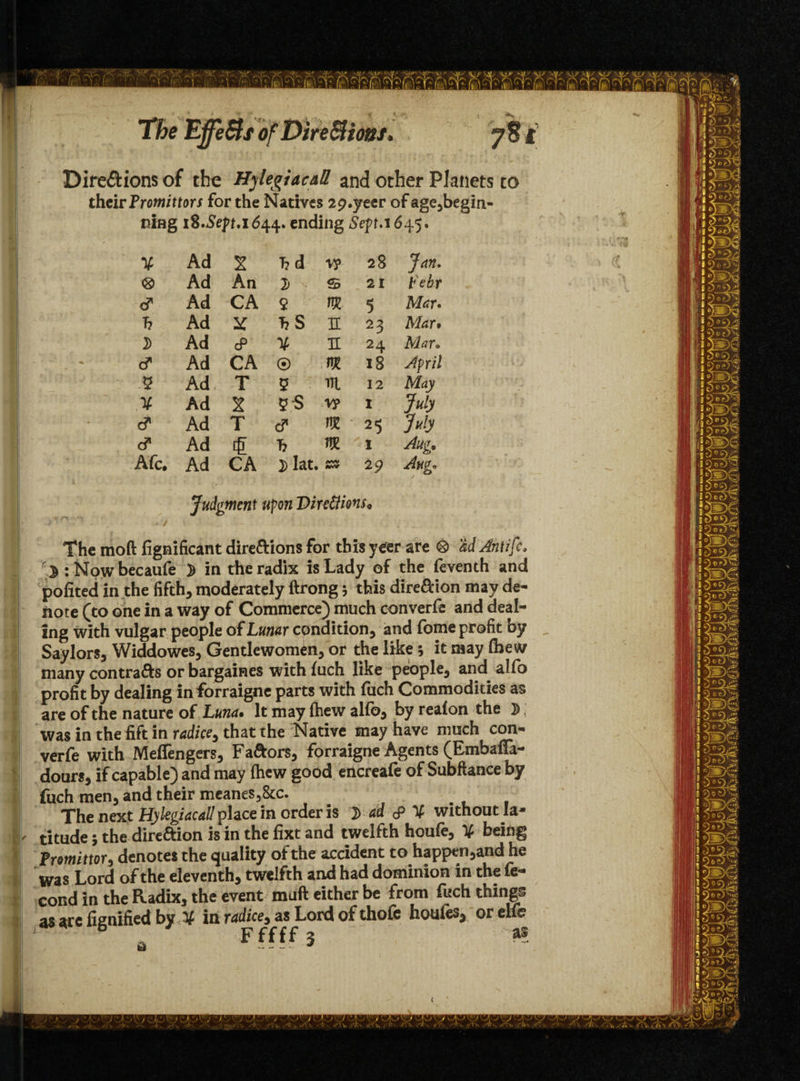 The Effects of Directions. 781
Directions of the Hylegiacall and other Planets to
their Promittors for the Natives 29.yeer of age,begin-
ning 18.Sept.1644. ending Sept.1645.
♃ Ad ⚻ ♄ d ♑ 28 Jan.
⊗ Ad An ☽ ♋ 21 Febr
♂ Ad CA ♀ ♍ 5 Mar.
♄ Ad ⚺ ♄ S ♊ 23 Mar.
☽ Ad ☍ ♃ ♊ 24 Mar.
♂ Ad CA ☉ ♍ 18 April
☿ Ad T ☿ ♏ 12 May
♃ Ad ⚻ ☿ S ♑ 1 July
♂ Ad T ♂ ♍ 25 July
♂ Ad ₢ ♄ ♍ 1 Aug.
Asc. Ad CA ☽ lat. ♒ 29 Aug.
Judgment upon Directions.
The most significant directions for this yeer are ⊗ ad Antisc.
☽ : Now because ☽ in the radix is Lady of the seventh and
posited in the fifth, moderately strong; this direction may de-
note (to one in a way of Commerce) much converse and deal-
ing with vulgar people of Lunar condition, and some profit by
Saylors, Widdowes, Gentlewomen, or the like; it may shew
many contracts or bargaines with such like people, and also
profit by dealing in forraigne parts with such Commodities as
are of the nature of Luna. It may shew also, by reason the ☽
was in the fift in radice, that the Native may have much con-
verse with Messengers, Factors, forraigne Agents (Embassa-
dours, if capable) and may shew good encrease of Substance by
such men, and their meanes,&c.
The next Hylegiacall place in order is ☽ ad ☍ ♃ without la-
titude; the direction is in the fixt and twelfth house, ♃ being
Promittor, denotes the quality of the accident to happen,and he
was Lord of the eleventh, twelfth and had dominion in the se-
cond in the Radix, the event must either be from such things
as are signified by ♃ in radice, as Lord of those houses, or else
a Fffff 3 as